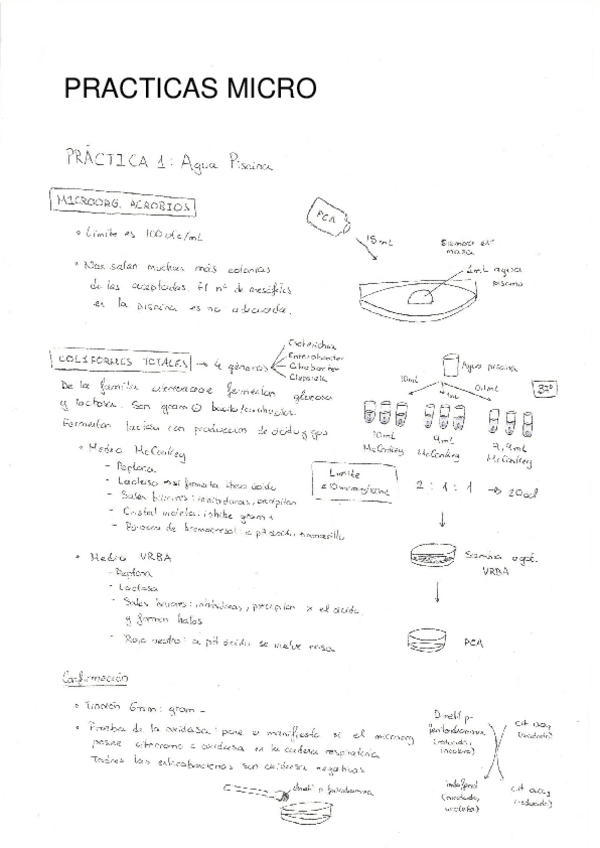 PRACTICAS MICRO
PRÁCTICA 1: Agua Piscina
MICROORG. AEROBIOS
• Límite es 100 ufc/mL
• Nos salen muchas más colonias
de las aceptadas. El nº de mesófilos
en la piscina es no adecuada.
PCA
15 mL
Siembra en
masa
1mL agua
piscina
COLIFORMES TOTALES → 4 géneros
Escherichia
Enterobacter
Citrobacter
De la familia fermentan glucosa
y lactosa. Son gram ⊖
Fermentan con producción de ácido y gas
Agua piscina
10mL
1mL
0,1mL
37º
10mL
McConkey
9mL
McConkey
9,9mL
McConkey
Límite
2 : 1 : 1 →
• Medio McConkey
- Peptona
- Lactosa
- Sales biliares: inhibidoras, precipitan
- Cristal violeta: inhibe gram +
- Púrpura de bromocresol: a pH ácido amarillo
• Medio VRBA
- Peptona
- Lactosa
- Sales biliares: inhibidoras, precipitan x el ácido
y forman halos
- Rojo neutro: a pH ácido se vuelve rosa
Siembra agot.
VRBA
PCA
Confirmación
• Tinción Gram: gram -
• Prueba de la oxidasa: pone de manifiesto si el microorg
posee citocromo c oxidasa en la cadena respiratoria
Todas las enterobacterias son oxidasa negativas
Dimetil p-
fenilendiamina
(reducido,
incoloro)
cit
(oxidado)
indofenol
(oxidado,
violeta)
cit
(reducido)
dimetil p fenilendiamina